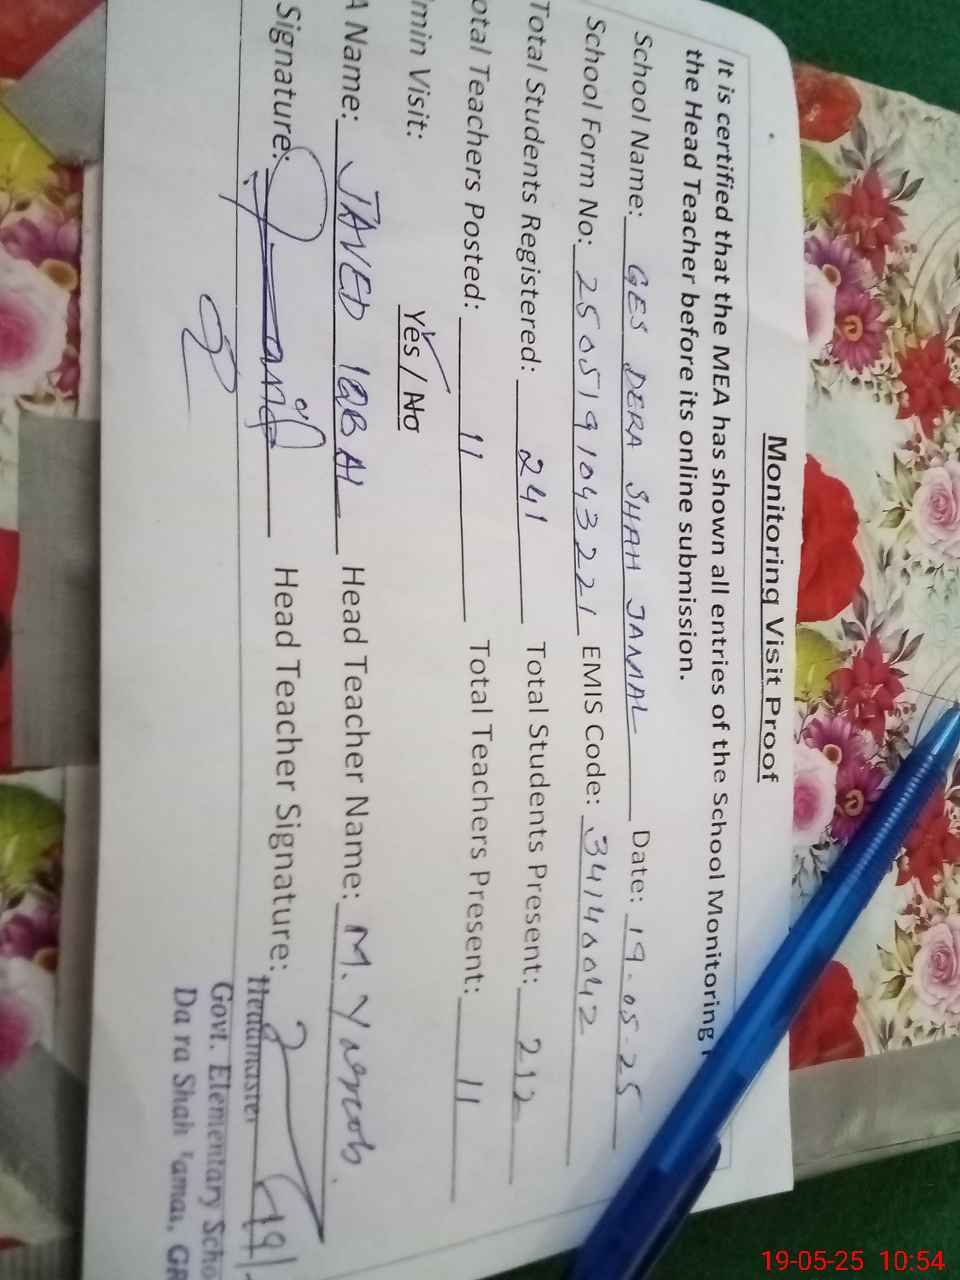 Monitoring Visit Proof
It is certified that the MEA has shown all entries of the School Monitoring
the Head Teacher before its online submission.
School Name: GES DERA SHAH JAMAL Date: 19-05-25
School Form No: 2505191043221 EMIS Code: 34140042
Total Students Registered: 241 Total Students Present: 212
otal Teachers Posted: 11 Total Teachers Present: 11
min Visit: Yes / No
A Name: JAVED IQBAL Head Teacher Name: M. Yaqoob.
Signature: Head Teacher Signature:
Headmaster
Govt. Elementary Scho
Da ra Shah
19-05-25 10:54